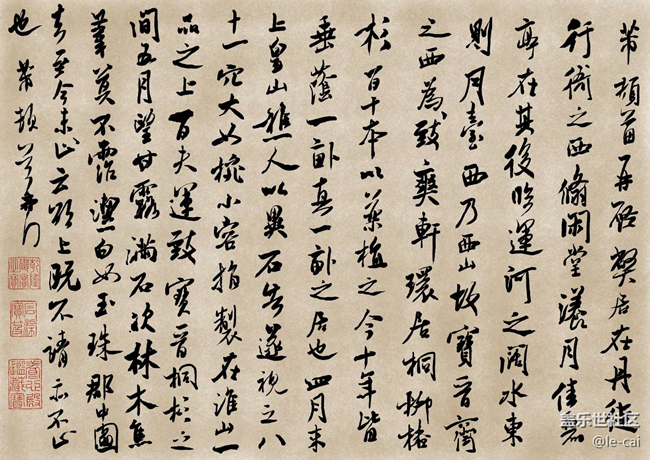 芾頓首再啓弊居在丹徒
行衙之西翛閑堂漾月佳麗
亭在其後臨運河之闊水東
則月臺西乃西山故寶晉齋
之西為致爽軒環居桐柳椿
杉百十本以藥植之今十年皆
垂蔭一畝真一畝之居也四月末
上皇山樵人以異石告遂視之八
十一穴大如椀小容指製在淮山一
品之上百夫運致寶晉桐杉之
間五月望甘露滿石次林木焦
葦莫不霑潔白如玉珠郡中圖
去至今未止云欲上既不請亦不止
也芾頓首再拜
盖乐世社区
@le-cai